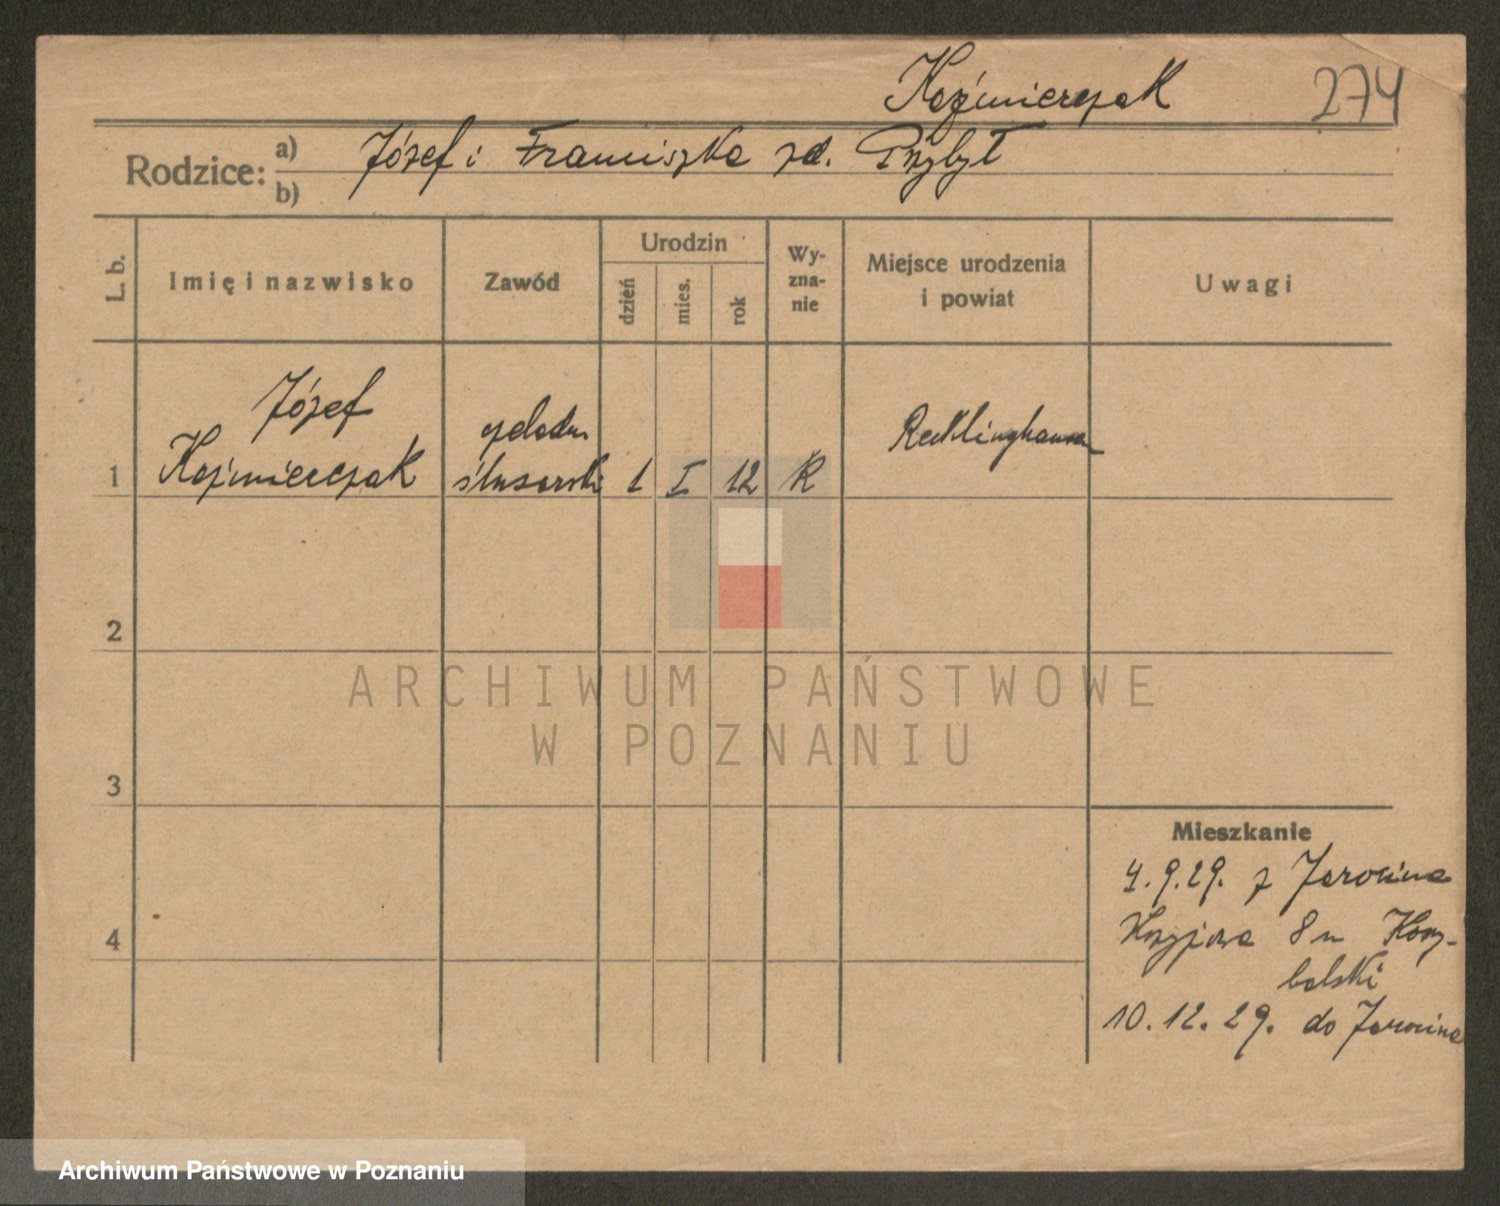 Kaźmierczak
274
Rodzice: a) b)
Józef i Franciszka zd. Przybył
L. b.
Imię i nazwisko
Zawód
Urodzin
dzień
mies.
rok
Wy-
zna-
nie
Miejsce urodzenia
i powiat
Uwagi
1
Józef
Kaźmierczak
czeladn
ślusarski
1
I
12
R
Recklinghausen
2
3
4
Mieszkanie
4.9.29. z Jarocina
8 u
balski
10.12.29. do Jarocina
ARCHIWUM PAŃSTWOWE
W POZNANIU
Archiwum Państwowe w Poznaniu